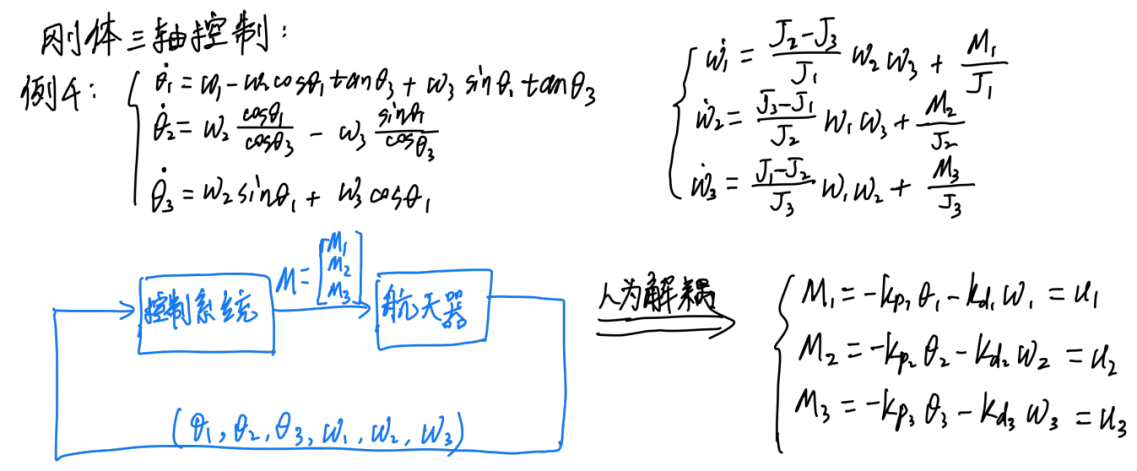 刚体三轴控制:
例4: { θ̇₁ = ω₁ - ω₂cosθ₁tanθ₃ + ω₃ sinθ₁tanθ₃
θ̇₂ = ω₂ cosθ₁/cosθ₃ - ω₃ sinθ₁/cosθ₃
θ̇₃ = ω₂sinθ₁ + ω₃cosθ₁
{ ω̇₁ = (J₂-J₃)/J₁ ω₂ω₃ + M₁/J₁
ω̇₂ = (J₃-J₁)/J₂ ω₁ω₃ + M₂/J₂
ω̇₃ = (J₁-J₂)/J₃ ω₁ω₂ + M₃/J₃
控制系统
M = [M₁ M₂ M₃]
航天器
(θ₁, θ₂, θ₃, ω₁, ω₂, ω₃)
人为解耦
{ M₁ = -kp₁θ₁ - kd₁ω₁ = u₁
M₂ = -kp₂θ₂ - kd₂ω₂ = u₂
M₃ = -kp₃θ₃ - kd₃ω₃ = u₃